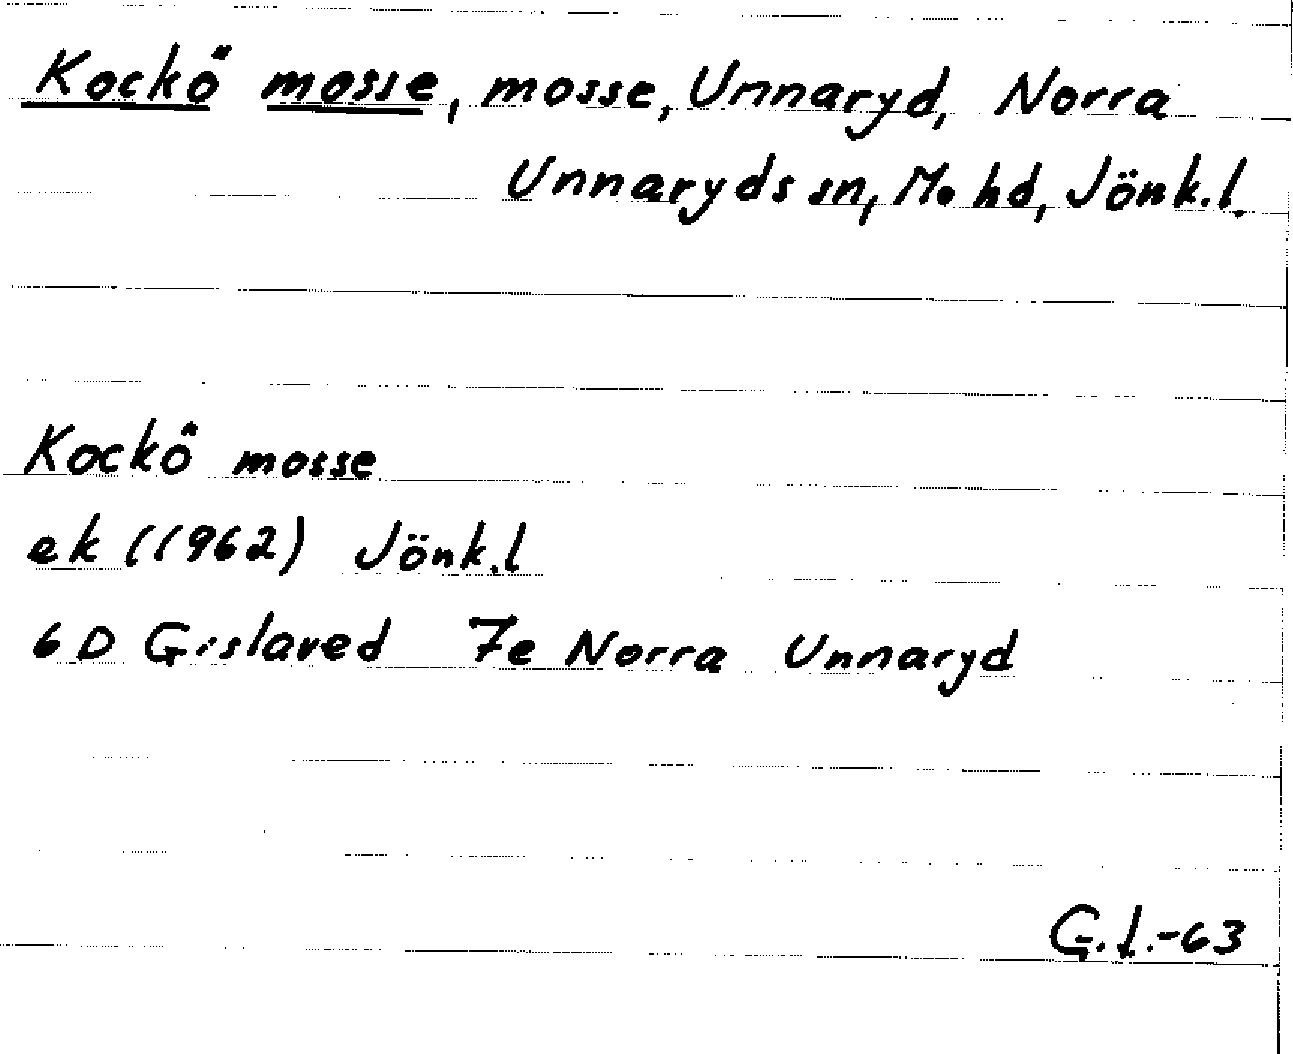 Kockö mosse, mosse, Unnaryd, Norra
Unnaryds sn, Mo hd, Jönk.l.
Kockö mosse
ek (1962) Jönk.l
6D Gislaved 7e Norra Unnaryd
G.I.-63